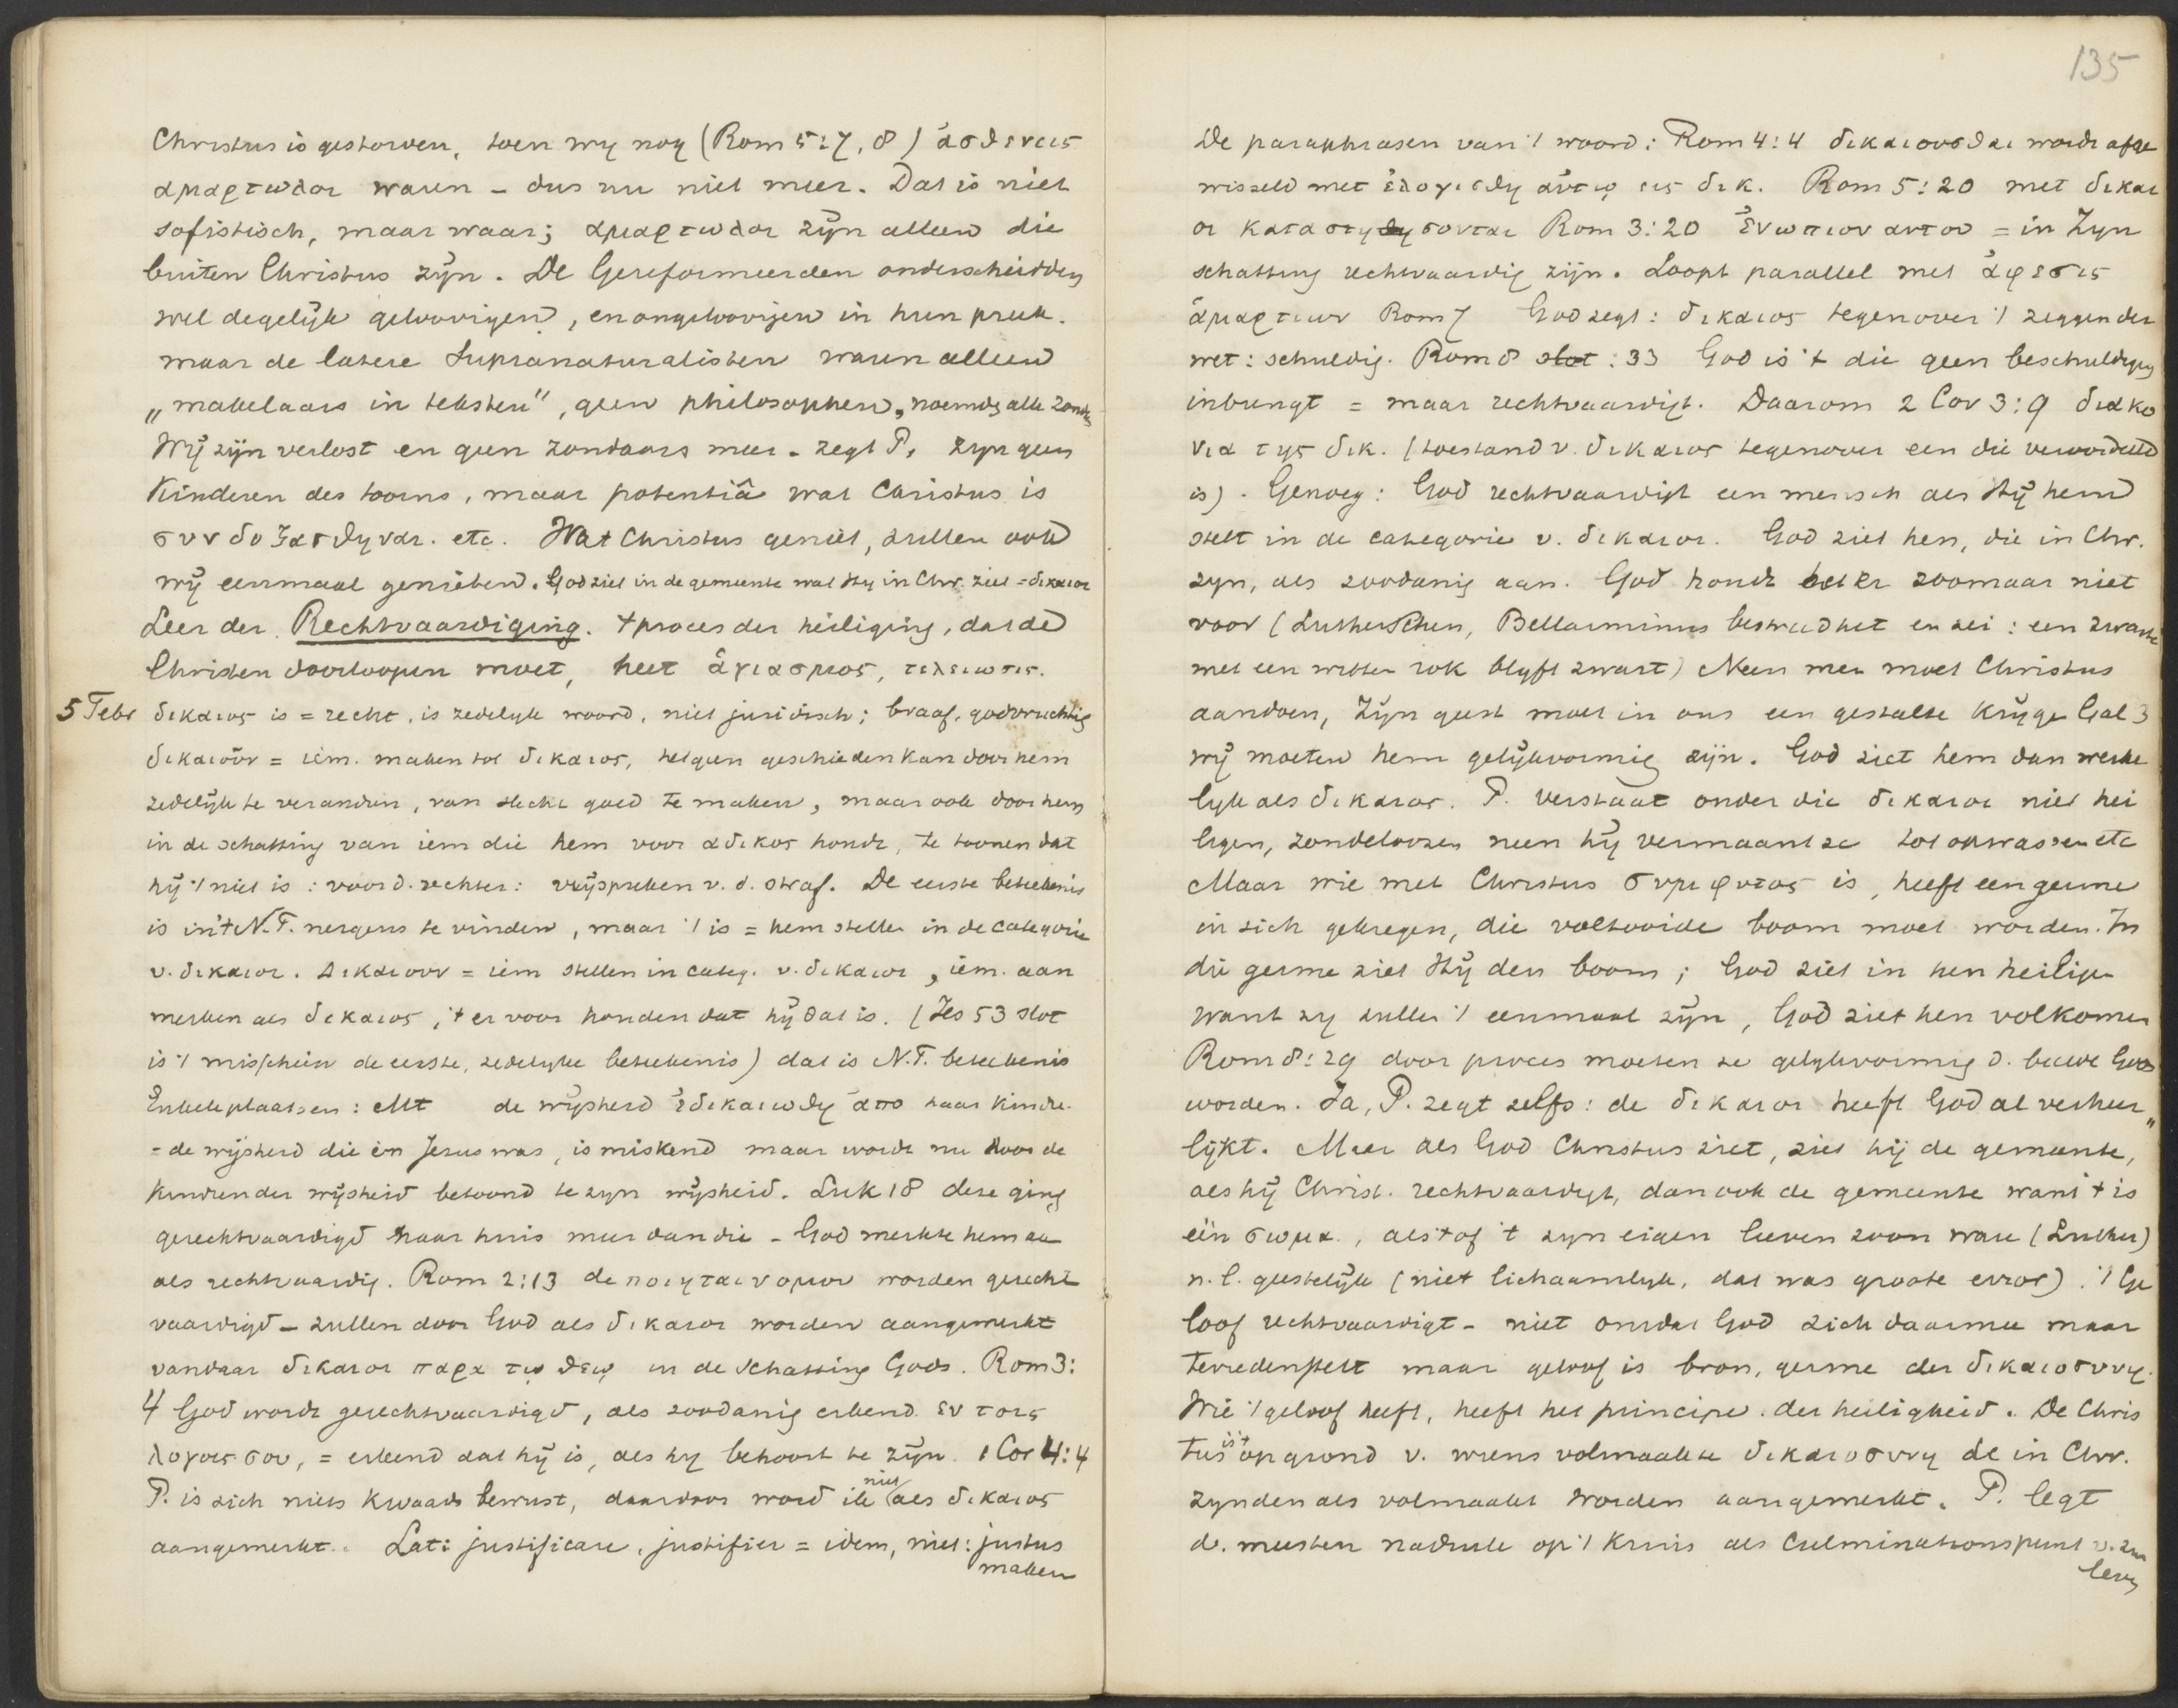 Christus is gestorven, toen wy nog (Rom 5:7, 8) ἀσθενεις
αμαρτωλοι waren – dus nu niet meer. Dat is niet
sofistisch, maar waar; αμαρτωλοι zijn alleen die
buiten Christus zijn. De Gereformeerden onderscheidden
wel degelijk geloovigen, en ongeloovigen in hun preek.
maar de latere Supranaturalisten waren alleen
„makelaars in teksten", geen philosophen, noemdg alle
Wij zijn verlost en geen zondaars meer – zegt P. zyn geen
Kinderen des toorns, maar potentiâ wat Christus is
συνδοξασθηναι. etc. Wat Christus geniet, zullen ook
wij eenmaal genieten. God ziet in de gemeente wat Hy in Chr. ziet = δικαιοι
Leer der Rechtvaardiging. 't proces der heiliging, dat de
Christen doorloopen moet, heet ἁγιασμος, τελειωσις.
5 Febr δικαιος is = recht, is zedelyk woord, niet juridisch; braaf, godvruchtig
δικαιοῦν = iem. maken tot δικαιος, hetgeen geschieden kan door hem
zedelijk te veranderen, van slecht goed te maken, maar ook door hem
in de schatting van iem die hem voor αδικος houdt, te toonen dat
hij 't niet is : voor d. rechter: vrijspreken v. d. straf. De eerste beteekenis
is in 't N.T. nergens te vinden, maar 't is = hem stellen in de categorie
v. δικαιοι. Δικαιουν = iem stellen in categ. v. δικαιοι, iem. aan
merken als δικαιος, 't er voor houden dat hij dat is. (Jes 53 slot
is 't misschien de eerste, zedelyke beteekenis) dat is N.T. beteekenis
Enkele plaatsen: Mt de wijsheid ἐδικαιωθη ἀπο haar kindr.
= de wijsheid die in Jesus was, is miskend maar wordt nu door de
kinderen der wijsheid betoond te zyn wijsheid. Luk 18 deze ging
gerechtvaardigd naar huis meer dan die – God merkte hem aan
als rechtvaardig. Rom 2:13 de ποιηται νομου worden gerecht
vaardigd – zullen door God als δικαιοι worden aangemerkt
vandaar δικαιοι παρα τῳ θεῳ in de Schatting Gods. Rom 3:
4 God wordt gerechtvaardigd, als zoodanig erkend εν τοις
λογοις σου, = erkend dat hij is, als hy behoort te zijn. 1 Cor 4:4
P. is zich niets kwaads bewust, daardoor word ik niet als δικαιος
aangemerkt. Lat: justificare, justifier = idem, niet: justus
maken

135
De paraphrasen van 't woord: Rom 4:4 δικαιουσθαι wordt afge
wisseld met ἐλογισθη αὐτῳ εις δικ. Rom 5:20 met δικαι
οι κατασταθησονται Rom 3:20 ἐνωπιον αυτου = in Zyn
schatting rechtvaardig zijn. Loopt parallel met ἀφεσις
ἁμαρτιων Rom 7 God zegt: δικαιος tegenover 't zeggen der
wet: schuldig. Rom 8 slot : 33 God is 't die geen beschuldiging
inbrengt = maar rechtvaardigt. Daarom 2 Cor 3:9 διακο
νια της δικ. (toestand v. δικαιος tegenover een die veroordeeld
is). Genoeg: God rechtvaardigt een mensch als Hij hem
stelt in de categorie v. δικαιοι. God ziet hen, die in Chr.
zyn, als zoodanig aan. God houdt er zoomaar niet
voor (Lutherschen, Bellarminus bestreed het en zei: een zwarte
met een witten rok blyft zwart) Neen men moet Christus
aandoen, Zijn geest moet in ons een gestalte krijgen Gal 3
wij moeten hem gelijkvormig zijn. God ziet hem dan werke
lyk als δικαιος. P. verstaat onder die δικαιοι niet hei
ligen, zondeloozen neen hij vermaant ze tot opwassen etc
Maar wie met Christus συμφυτος is, heeft een germe
in zich gekregen, die voltooide boom moet worden. In
die germe ziet Hij den boom; God ziet in hen heiligen
want zy zullen 't eenmaal zijn, God ziet hen volkomen
Rom 8:29 door proces moeten ze gelykvormig d. beelde Gods
worden. Ja, P. zegt zelfs: de δικαιοι heeft God al verheer„
lijkt. Maar als God Christus ziet, ziet hij de gemeente,
als hij Christ. rechtvaardigt, dan ook de gemeente want 't is
één σωμα, als 't of 't zyn eigen lieven zoon ware (Luther)
n.l. geestelijk (niet lichaamlyk, dat was groote error). 't Ge
loof rechtvaardigt – niet omdat God zich daarmee maar
tevredenstelt maar geloof is bron, germe der δικαιοσυνη.
Wie 't geloof heeft, heeft het principe der heiligheid. De Chris
tus is 't op grond v. wiens volmaakte δικαιοσυνη de in Chr.
zynden als volmaakt worden aangemerkt. P. legt
de meesten nadruk op 't Kruis als Culminationspunt v. zyn
leven